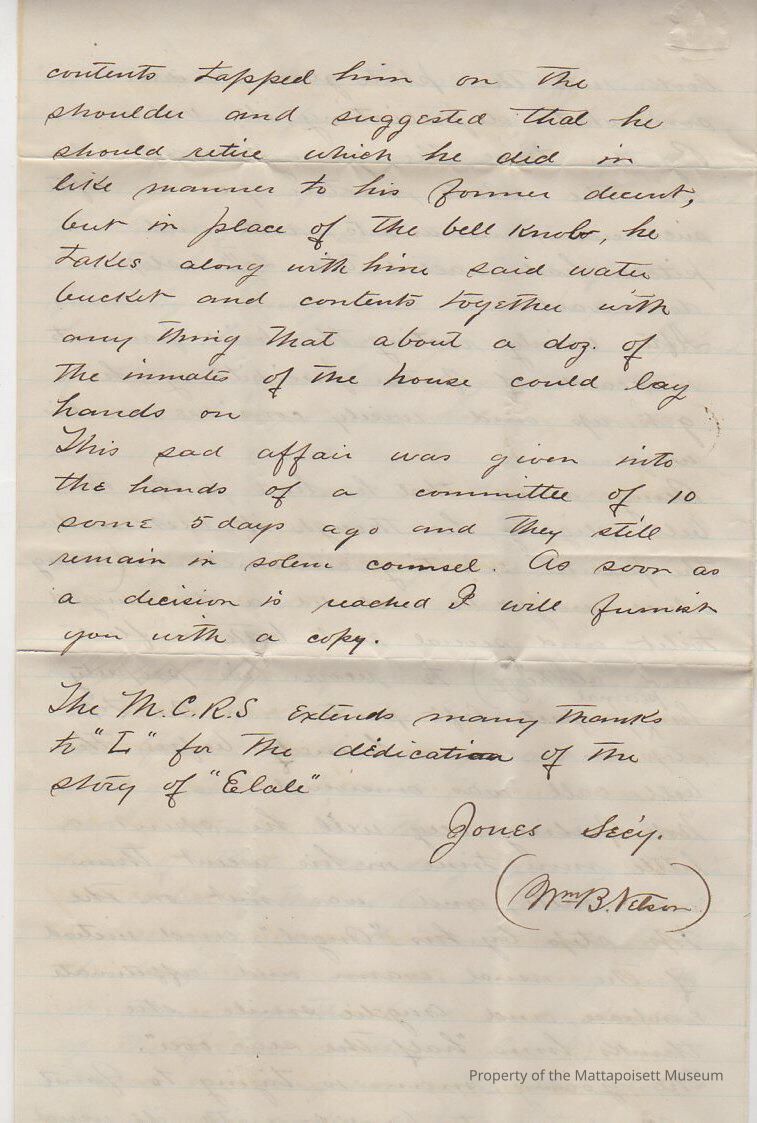 contents tapped him on the
shoulder and suggested that he
should retire which he did in
like manner to his former decent,
but in place of the bell knob, he
takes along with him said water
bucket and contents together with
any thing that about a doz. of
the inmates of the house could lay
hands on
This sad affair was given into
the hands of a committee of 10
some 5 days ago and they still
remain in solem counsel. As soon as
a decision is reached I will furnish
you with a copy.
The M.C.R.S extends many thanks
to "L" for the dedication of the
story of "Elale"
Jones Sec'y.
(Wm B. Nelson)
Property of the Mattapoisett Museum